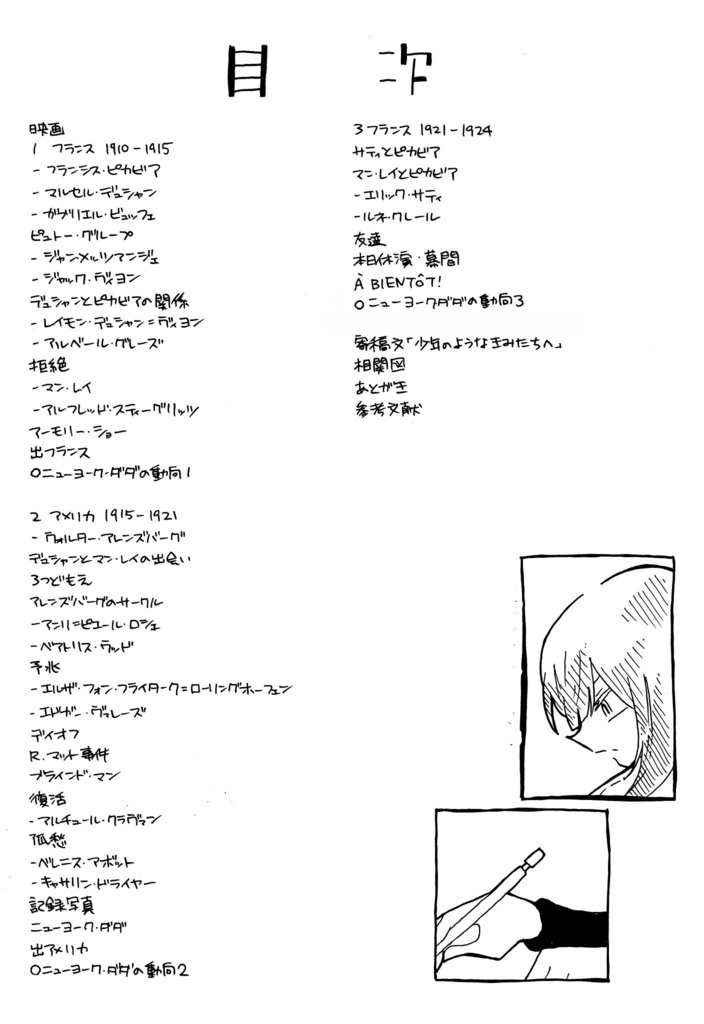 目次
映画
1 フランス 1910-1915
- フランシス・ピカビア
- マルセル・デュシャン
- ガブリエル・ビュッフェ
ピュトー・グループ
- ジャン・メッツァンジェ
- ジャック・ヴィヨン
デュシャンとピカビアの関係
- レイモン・デュシャン=ヴィヨン
- アルベール・グレーズ
拒絶
- マン・レイ
- アルフレッド・スティーグリッツ
アーモリー・ショー
出フランス
○ニューヨーク・ダダの動向1
2 アメリカ 1915-1921
- ウォルター・アレンズバーグ
デュシャンとマン・レイの出会い
3つどもえ
アレンズバーグのサークル
- アンリ=ピエール・ロシェ
- ベアトリス・ウッド
予兆
- エルザ・フォン・フライターク=ローリングホーフェン
- エドガー・ヴァレーズ
デイオフ
R.マット事件
ブラインド・マン
復活
- アルチュール・クラヴァン
孤愁
- ベレニス・アボット
- キャサリン・ドライヤー
記録写真
ニューヨーク・ダダ
出アメリカ
○ニューヨーク・ダダの動向2
3 フランス 1921-1924
サティとピカビア
マン・レイとピカビア
- エリック・サティ
- ルネ・クレール
友達
本日休演・幕間
À BIENTÔT!
○ニューヨークダダの動向3
寄稿文「少年のようなきみたちへ」
相関図
あとがき
参考文献